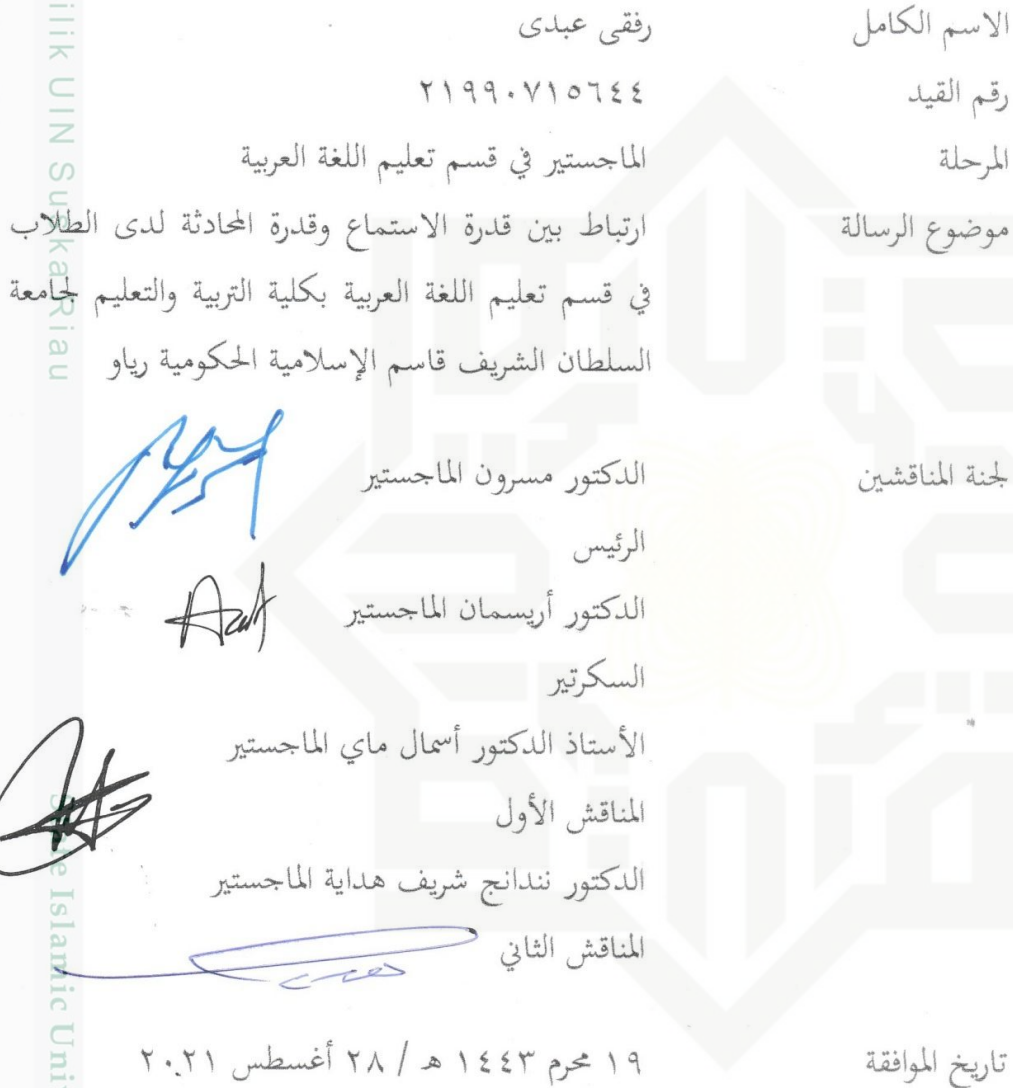 الاسم الكامل رفقى عبدى
رقم القيد ٢١٩٩٠٧١٥٦٤٤
المرحلة الماجستير في قسم تعليم اللغة العربية
موضوع الرسالة ارتباط بين قدرة الاستماع وقدرة المحادثة لدى الطلاب
في قسم تعليم اللغة العربية بكلية التربية والتعليم لجامعة
السلطان الشريف قاسم الإسلامية الحكومية رياو
لجنة المناقشين الدكتور مسرون الماجستير
الرئيس
الدكتور أريسمان الماجستير
السكرتير
الأستاذ الدكتور أسمال ماي الماجستير
المناقش الأول
الدكتور نندانج شريف هداية الماجستير
المناقش الثاني
تاريخ الموافقة ١٩ محرم ١٤٤٣ هـ / ٢٨ أغسطس ٢٠٢١
ilik UIN Suska Riau
Islamic Uni